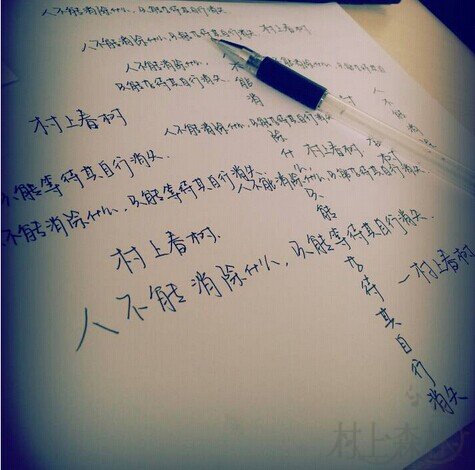 人不能消除什么,只能等待其自行消失.
人不能消除什么,只能等待其自行消失 村上春树
人不能消除什么,只能等待其自
只能等待其自行消失.
村上春树
人不能消除什么,只能等待其自行消失
村上春树
能等待其自行消失.
人不能消除什么,只能等待其自行消失.
不能消除什么,只能等待其自行消失.
村上春树.
人不能消除什么,只能等待其自行消失.
—村上春树
能消除什么只能等待其自行消失
人不能消
村上森